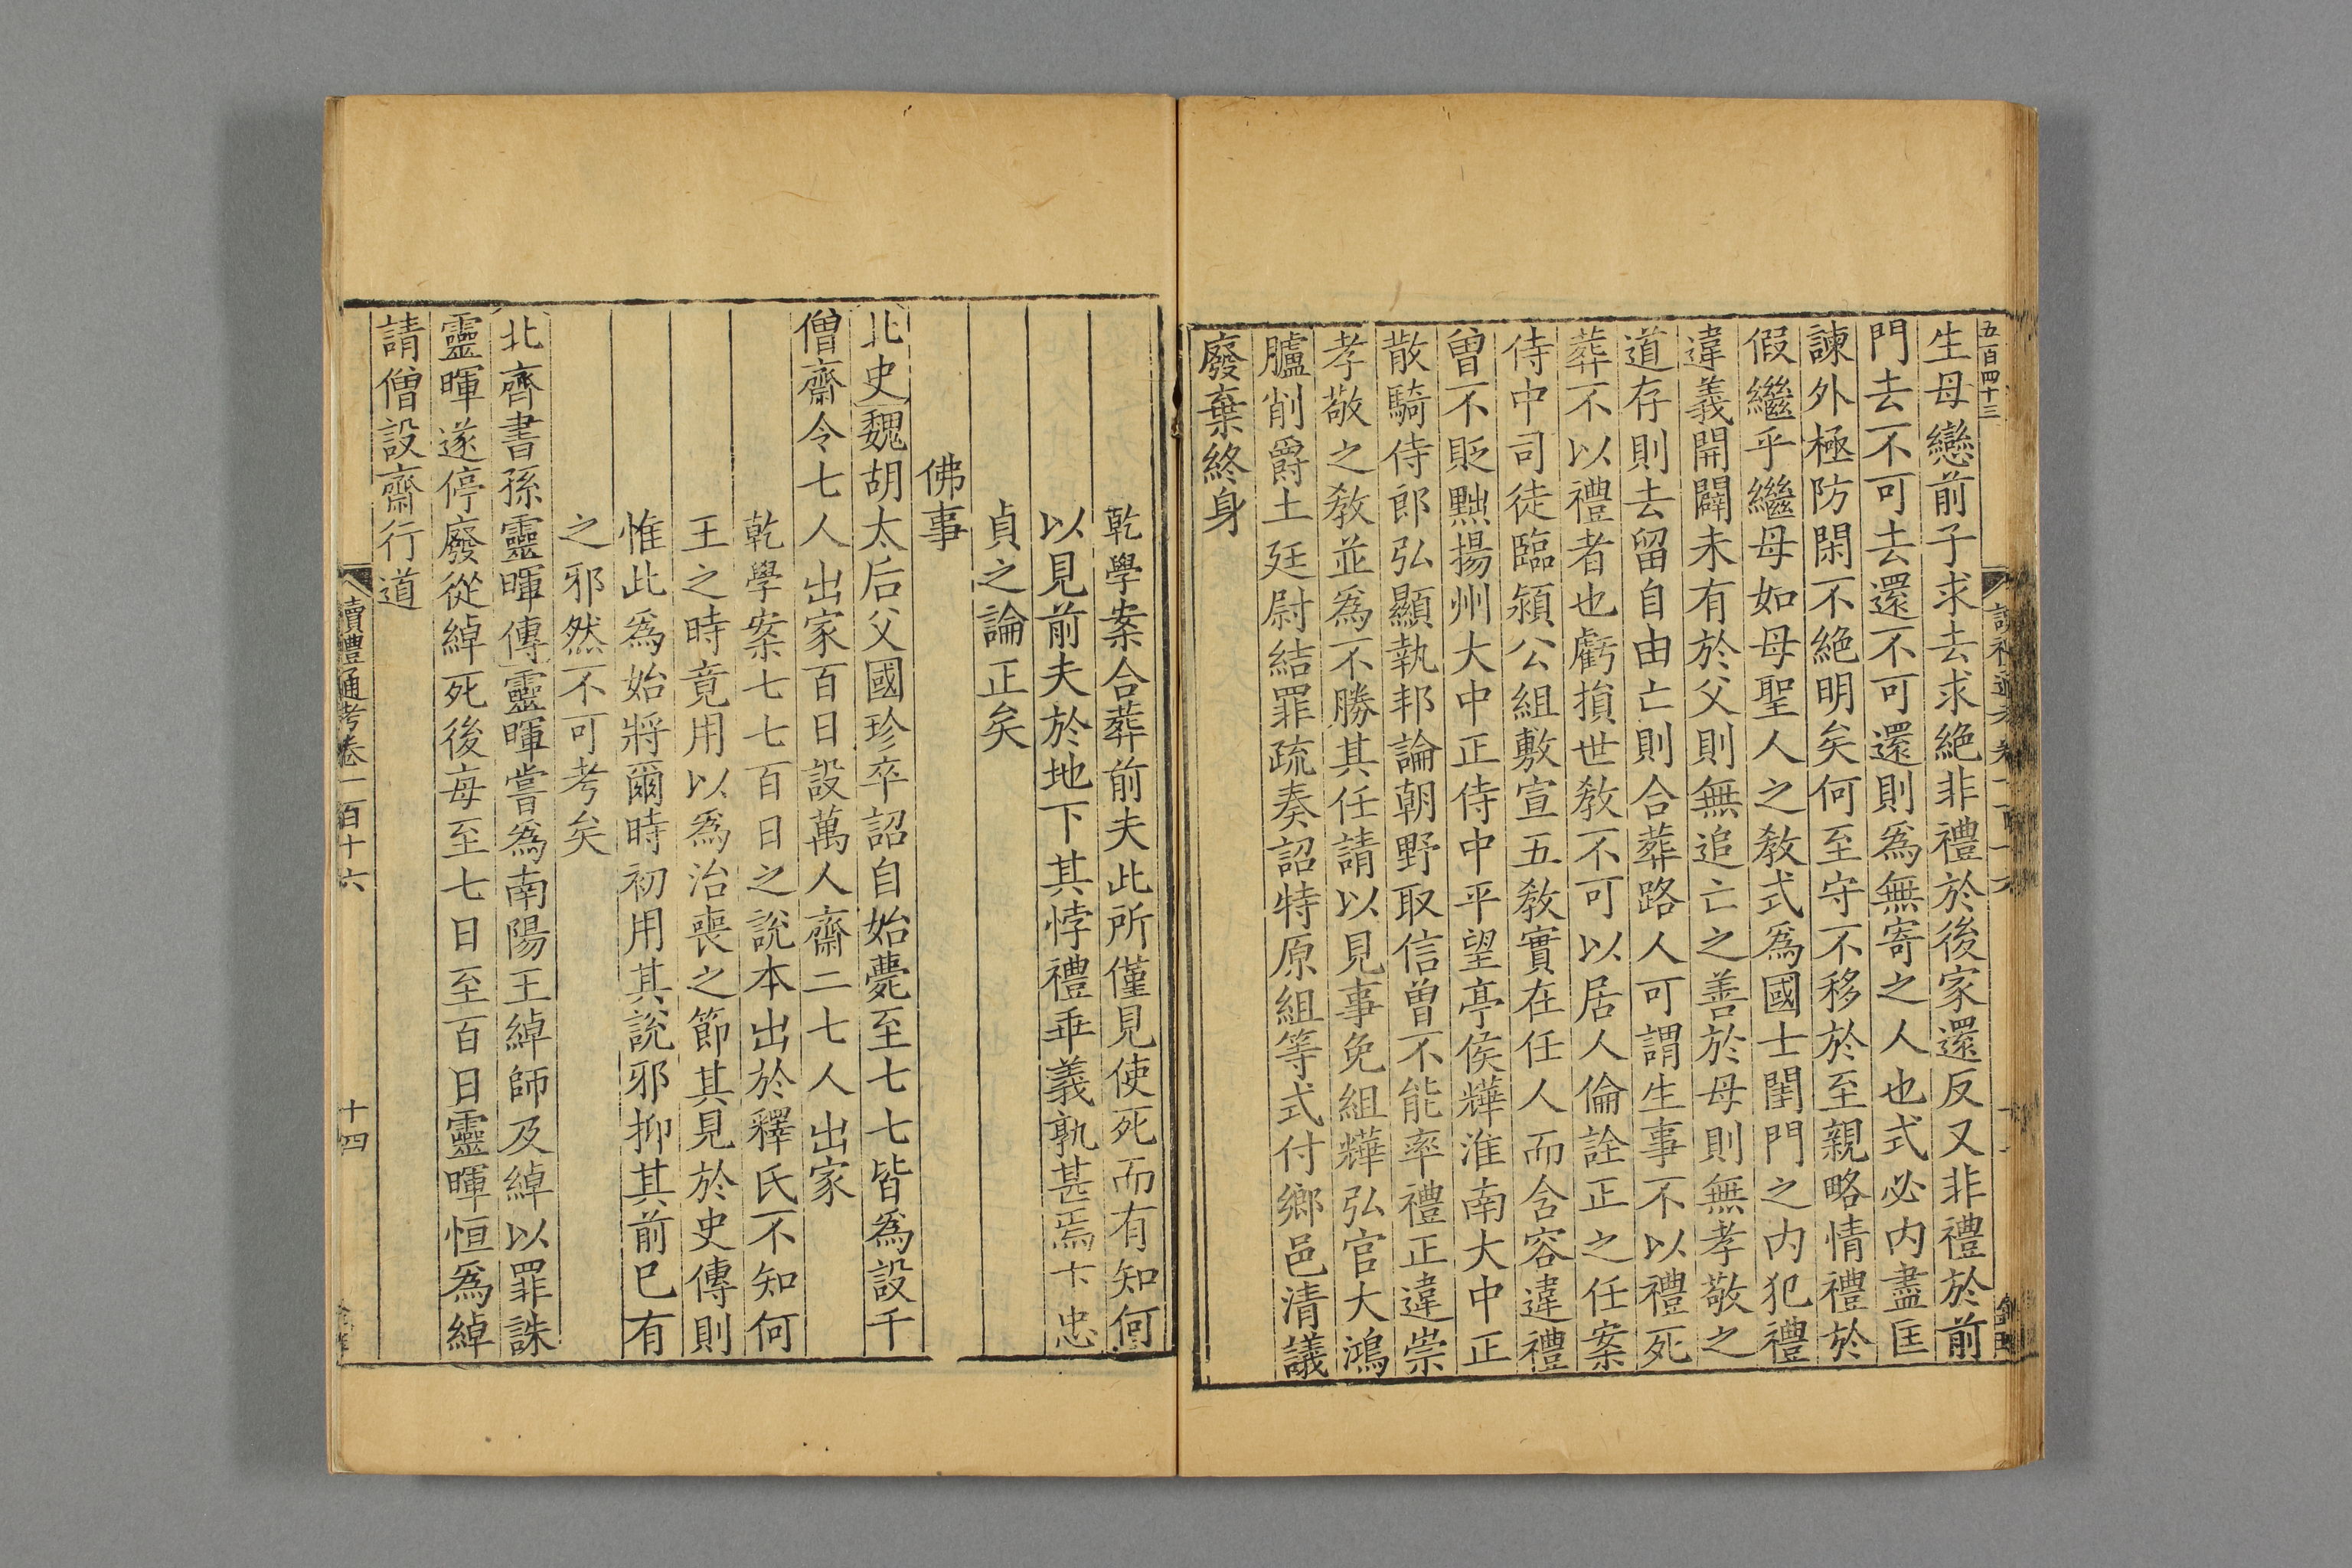 五百四十三
生母戀前子求去求絶非禮於後家還反又非禮於前
門去不可去還不可還則爲無寄之人也式必内盡匡
諫外極防閑不絶明矣何至守不移於至親略情禮於
假繼乎繼母如母聖人之敎式爲國士閨門之内犯禮
違義開闢未有於父則無追亡之善於母則無孝敬之
道存則去留自由亡則合葬路人可謂生事不以禮死
葬不以禮者也虧損世敎不可以居人倫詮正之任案
侍中司徒臨潁公組敷宣五敎實在任人而含容違禮
曾不貶黜揚州大中正侍中平望亭侯嘩淮南大中正
散騎侍郎弘顯執邦論朝野取信曾不能率禮正違崇
孝敬之敎並爲不勝其任請以見事免組嘩弘官大鴻
臚削爵土廷尉結罪疏奏詔特原組等式付鄉邑清議
廢棄終身
乾學案合葬前夫此所僅見使死而有知何
以見前夫於地下其悖禮乖義孰甚焉卞忠
貞之論正矣
佛事
北史魏胡太后父國珍卒詔自始薨至七七皆爲設千
僧齋令七人出家百日設萬人齋二七人出家
乾學案七七百日之說本出於釋氏不知何
王之時竟用以爲治喪之節其見於史傳則
惟此爲始將爾時初用其說邪抑其前已有
之邪然不可考矣
北齊書孫靈暉傳靈暉嘗爲南陽王綽師及綽以罪誅
靈暉遂停廢從綽死後每至七日至百日靈暉恒爲綽
請僧設齋行道
讀禮通考卷一百十六
十四